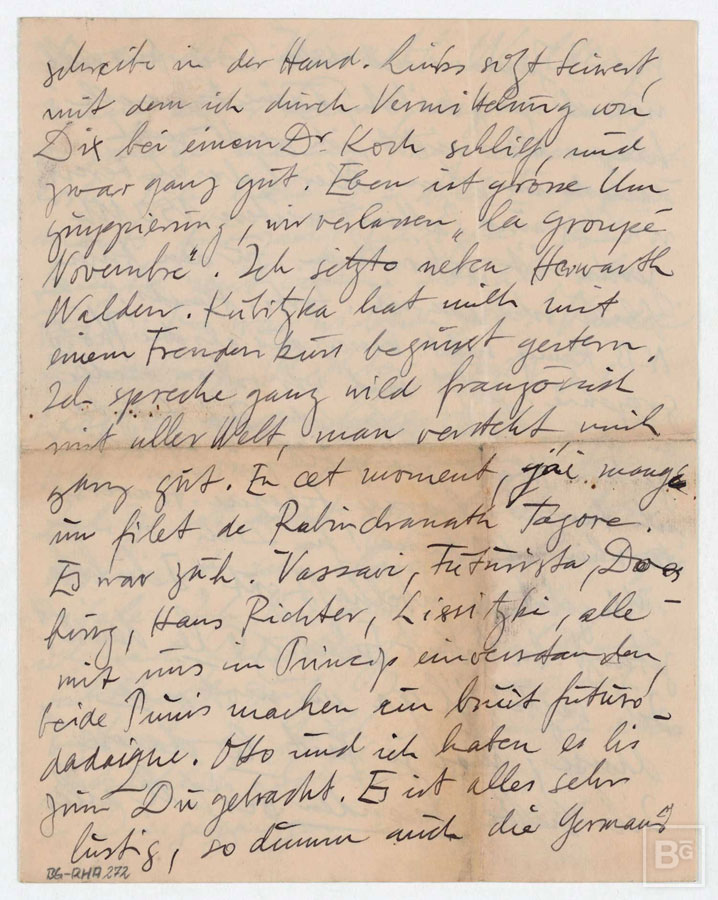 schreibe in der Hand. Links sitzt Seiwert,
mit dem ich durch Vermittelung von
Dix bei einem Dr. Koch schlief, und
zwar ganz gut. Eben ist grosse Um
gruppierung, wir verlassen „la groupe
Novembre". Ich sitzte neben Herwarth
Walden. Kubitzka hat mich mit
einem Fremdenkuss begrüsst gestern.
Ich spreche ganz wild französisch
mit aller Welt, man versteht mich
ganz gut. En cet moment, j'ai mangé
un filet de Rabindranath Tagore.
Es war zäh. Vassari, Futurista, Does
burg, Hans Richter, Lissitzki, alle
mit uns im Princip einverstanden,
beide Punis machen un bruit futuro
dadaique. Otto und ich haben es bis
zum Du gebracht. Es ist alles sehr
lustig, so dumm auch die Germans
BG-RHA 272
BG